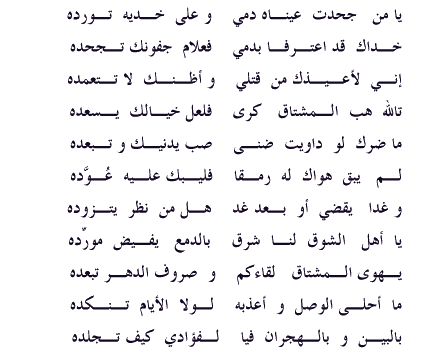 يا من جحدت عيناه دمي و على خديه تورده
خداك قد اعترفا بدمي فعلام جفونك تجحده
إني لأعيذك من قتلي و أظنك لا تتعمده
تالله هب المشتاق كرى فلعل خيالك يسعده
ما ضرك لو داويت ضنى صب يدنيك و تبعده
لم يبق هواك له رمقا فليبك عليه عُوَّده
و غدا يقضي أو بعد غد هل من نظر يتزوده
يا أهل الشوق لنا شرق بالدمع يفيض مورّده
يهوى المشتاق لقاءكم و صروف الدهر تبعده
ما أحلى الوصل و أعذبه لولا الأيام تنكده
بالبين و بالهجران فيا لفؤادي كيف تجلده